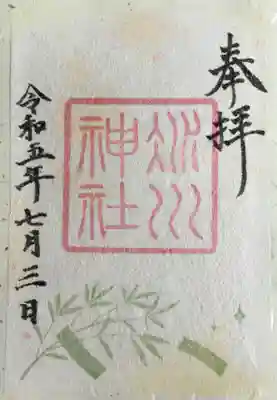 奉拝
冰川
神社
令和五年七月三日